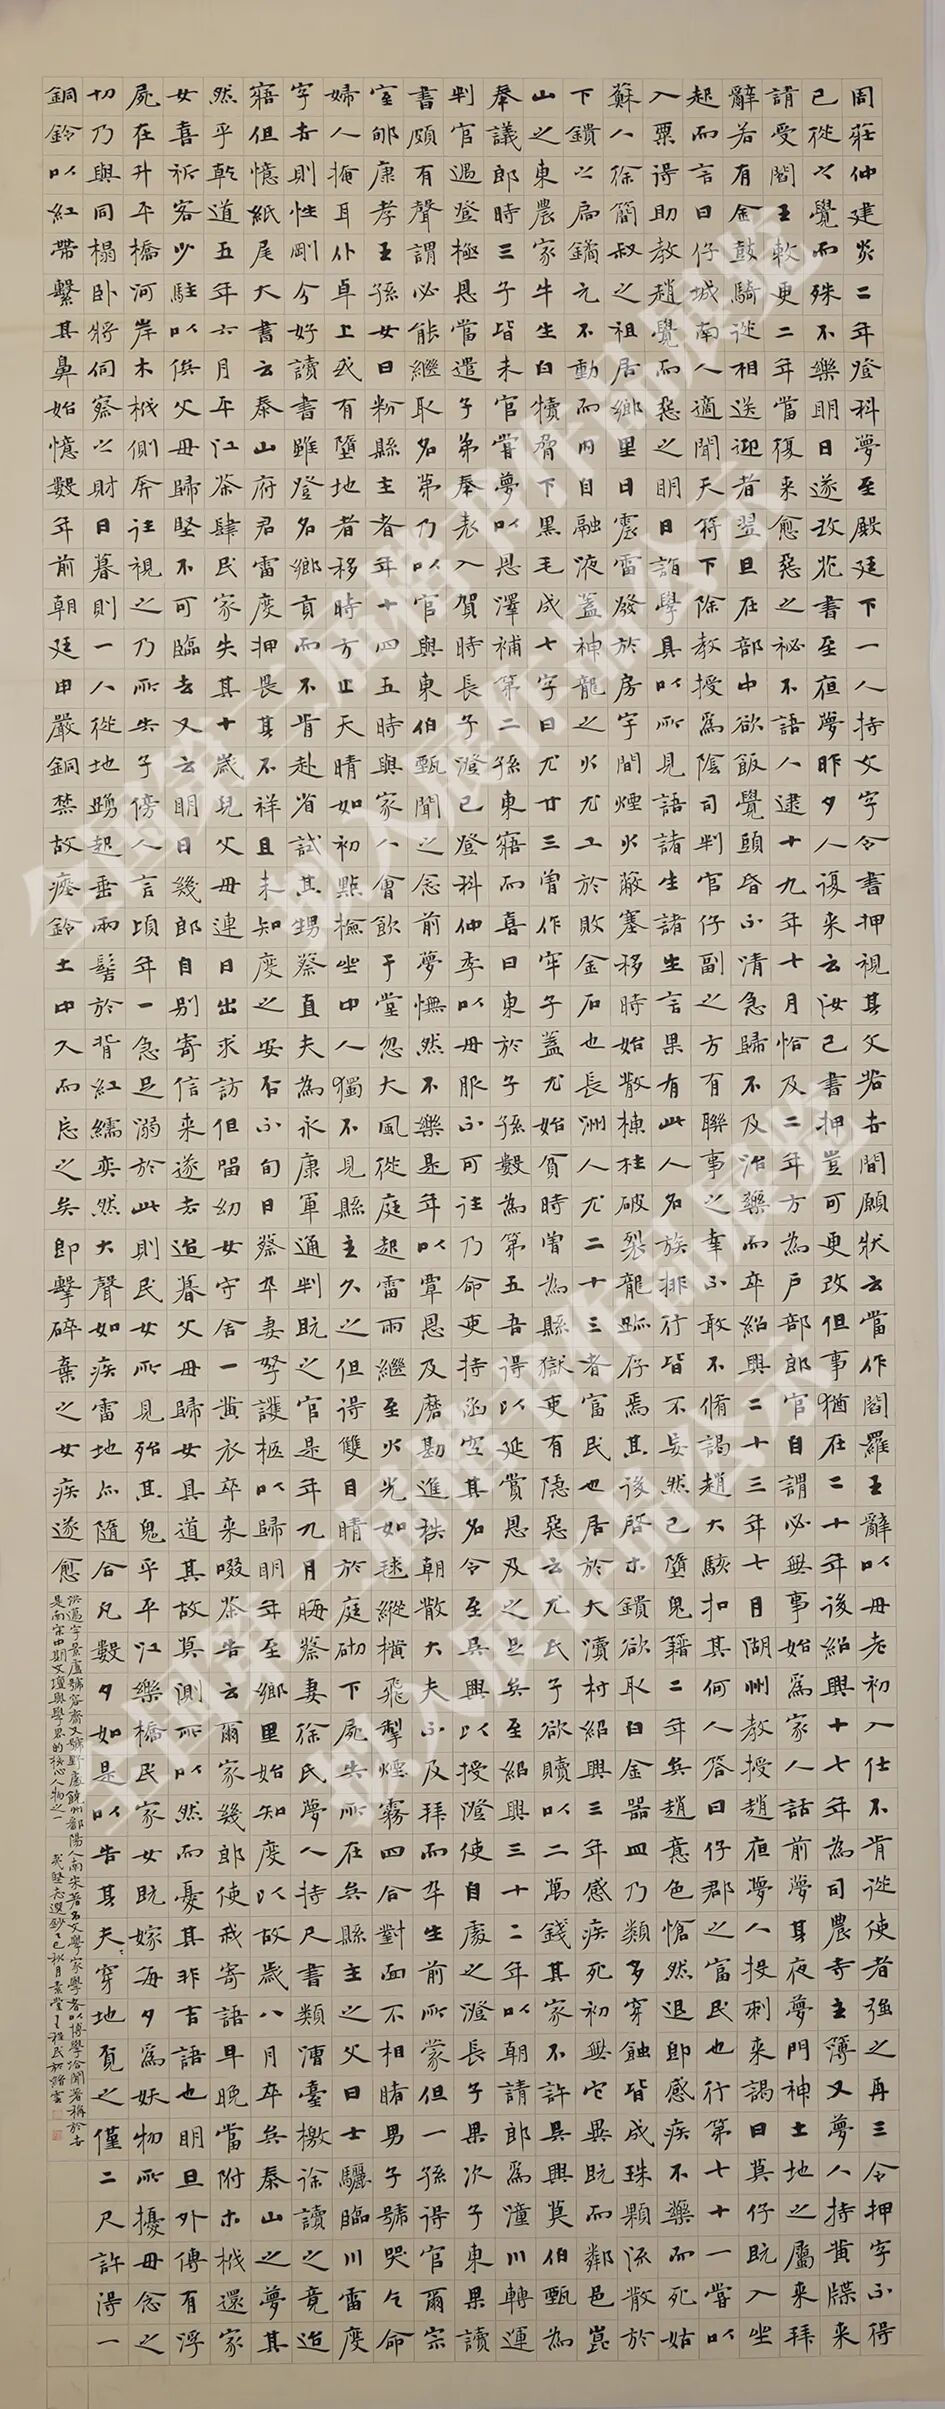 周莊仲建炎二年登科夢至殿廷下一人持文字令書押視其文若世間願狀云當作閻羅王辭以母老初入仕不肯從使者強之再三令押字不得
已從之覺而殊不樂明日遂改花書至夜夢昨夕人復来云汝已書押豈可更改但事猶在二十年後紹興十七年為司農寺主簿又夢人持黃牒来
請受閻王敕更二年當復来愈惡之祕不語人逮十九年十月恰及二年方為戶部郎官自謂必無事始爲家人話前夢其夜夢門神土地之屬来拜
辭若有金鼓騎從相送迎者翌旦在部中欲飯覺頭昏不清急歸不及治藥而卒紹興二十三年七月湖州教授趙夜夢人投刺来謁曰莫仔既入坐
起而言曰仔城南人適聞天符下除教授爲陰司判官仔副之方有聯事之幸不敢不脩謁趙大駭扣其何人答曰仔郡之富民也行第七十一嘗以
入粟得助教趙覺而惡之明日詣學具以所見語諸生諸生言果有此人名族排行皆不妄然已墮鬼籍二年矣趙意色愴然退即感疾不藥而死姑
蘇人徐簡叔之祖居鄉里日震雷發於房宇間煙火蔽塞移時始散棟柱破裂龍跡存焉其後啓木鎖欲取白金器皿乃類多穿蝕皆成珠顆流散於
下鐼之扃鐍元不動而内自融液蓋神龍之火尤工於敗金石也長洲人尤二十三者富民也居於大瀆村紹興三年感疾死初無它異既而鄰邑崑
山之東農家牛生白犢脅下黑毛成七字曰尤廿三曽作牢子蓋尤始貧時曽為縣獄吏有隱惡云尤氏子欲贖以二萬錢其家不許異興莫伯甄為
奉議郎時三子皆未官嘗夢以恩澤補第二孫東寤而喜曰東於子孫數為第五吾得以延賞恩及之足矣至紹興三十二年以朝請郎爲潼川轉運
判官遇登極恩當遣子弟奉表入賀時長子澄已登科仲季以母服不可往乃命吏持函空其名令至吳興以授澄使自處之澄長子果次子東果讀
書頗有聲謂必能繼取名第乃以官與東伯甄聞之念前夢憮然不樂是年以覃恩及磨勘進秩朝散大夫不及拜而卒生前所蒙但一孫得官爾宗
室邮康孝王孫女曰粉縣主者年十四五時與家人會飲于堂忽大風從庭起雷雨繼至火光如毬縱横飛掣煙霧四合對面不相睹男子號哭乞命
婦人掩耳仆卓上或有墮地者移時方止天晴如初點檢坐中人獨不見縣主久之但得雙目睛於庭砌下屍失所在矣縣主之父曰士驪臨川雷度
字世則性剛今好讀書雖登名鄉貢而不肯赴省試其甥蔡直夫為永康軍通判既之官是年九月晦蔡妻徐氏夢人持尺書類漕臺檄徐讀之竟迨
寤但憶紙尾大書云泰山府君雷度押畏其不祥且未知度之安否不旬日蔡卒妻孥護柩以歸明年至鄉里始知度以故歲八月卒矣泰山之夢其
然乎乾道五年六月平江茶肆民家失其十歲兒父母連日出求訪但留幼女守舍一黃衣卒来啜茶告云爾家幾郎使我寄語早晚當附木栰還家
女喜祈客少駐以俟父母歸堅不可臨去又云明日幾郎自别寄信来遂去迨暮父母歸女具道其故莫測所以然而憂其非吉語也明旦外傳有浮
屍在升平橋河岸木栰側奔往視之乃所失子傍人言頃年一急足溺於此則民女所見殆其鬼乎平江樂橋民家女既嫁每夕爲妖物所擾母念之
切乃與同榻卧將伺察之財日暮則一人從地踴起垂兩髻於背紅繻奕然大聲如疾雷地亦隨合凡數夕如是以告其夫〻穿地覓之僅二尺許得一
銅鈴以紅帶繫其鼻始憶數年前朝廷申嚴銅禁故瘞鈴土中久而忘之矣即擊碎棄之女疾遂愈
洪邁字景盧號容齋又號野處饒州鄱陽人南宋著名文學家學者以博學洽聞著稱於世
是南宋中期文壇與學界的核心人物之一 夷堅志選鈔乙巳秋月